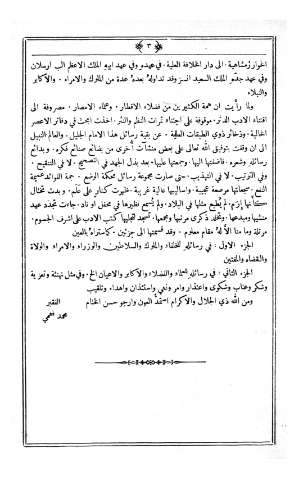 ﴿ ٣ ﴾
الخوارزمشاهية. الى دار الخلافة العلية. في عهده وفي عهد ابيه الملك الاعظم الب ارسلان
وفي عهد جده الملك السعيد اتسز وقد تداوله بعده عدة من الملوك والامراء. والاكابر
والنبلاء
ولما رأيت ان همة الكثيرين من فضلاء الاقطار. وعلماء الامصار. مصروفة الى
اقتناء الادب الدثر. موقوفة على اجتناء ثمرات النظم والنثر. اخذت ابحث في دفاتر الاعصر
الخالية. وذخائر ذوي الطبقات العالية. عن بقية رسائل هذا الامام الجليل. والعالم النبيل
الى ان وقفت بتوفيق الله تعالى على بعض منشآت أخرى من بضائع صنائع فكره. وبدائع
رسائله وشعره. فاضفتها اليها. وجمعتها عليها. بعد بذل الجهد في التصحيح. لا في التنقيح.
وفي الترتيب. لا في التهذيب. حتى صارت مجموعة رسائل محكمة الوضع. جمة الفوائد عميمة
النفع. سجعاتها مرصعة عجيبة. واساليبها عالية غريبة. ظهرت كنار على علم. وبدت تختال
كأنها إرم. لم يطبع مثلها في البلاد. ولم يسمح نظيرها في محفل او ناد. جاءت تجدد عهد
منشيها ومبدعها. وتخلد ذكرى مرتبها ومجمعها. تسجد لتجليها كتب الادب على اشرف الجسوم.
مرتلة وما منا الا له مقام معلوم. وقد قسمتها الى جزئين. كاستواء بالعين
الجزء الاول. في رسائله للخلفاء والملوك والسلاطين والوزراء والامراء والولاة
والقضاة والمفتين
الجزء الثاني. في رسائله للعلماء والفضلاء والاكابر والاعيان الخ. في مثل تهنئة وتعزية
وشكر وعتاب وشكوى واعتذار وامر ونهي واستئذان واهداء وتلقيب
ومن الله ذي الجلال والاكرام استمد العون وارجو حسن الختام
الفقير
محمد فهمي